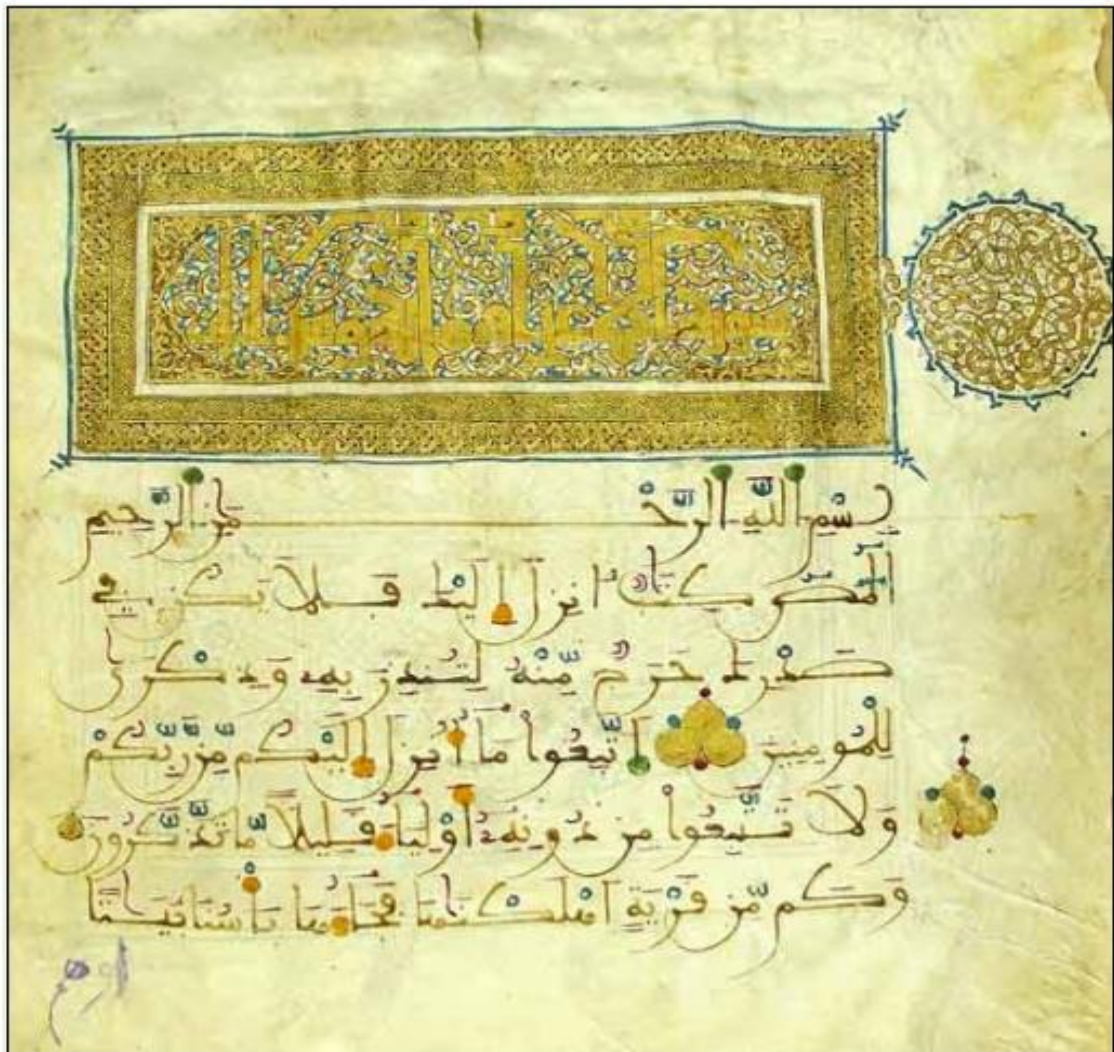 بِسْمِ اللَّهِ الرَّحْمَنِ الرَّحِيمِ
الٓمٓصٓ كِتَٰبٌ انزِلَ إِلَيْكَ فَلَا يَكُن فِي
صَدْرِكَ حَرَجٌ مِّنْهُ لِتُنذِرَ بِهِ وَذِكْرَىٰ
لِلْمُومِنِينَ اتَّبِعُوا مَا أُنزِلَ إِلَيْكُم مِّن رَّبِّكُمْ
وَلَا تَتَّبِعُوا مِن دُونِهِ أَوْلِيَاءَ قَلِيلًا مَّا تَذَّكَّرُونَ
وَكَم مِّن قَرْيَةٍ اهْلَكْنَٰهَا فَجَاءَهَا بَأْسُنَا بَيَٰتًا
او هم